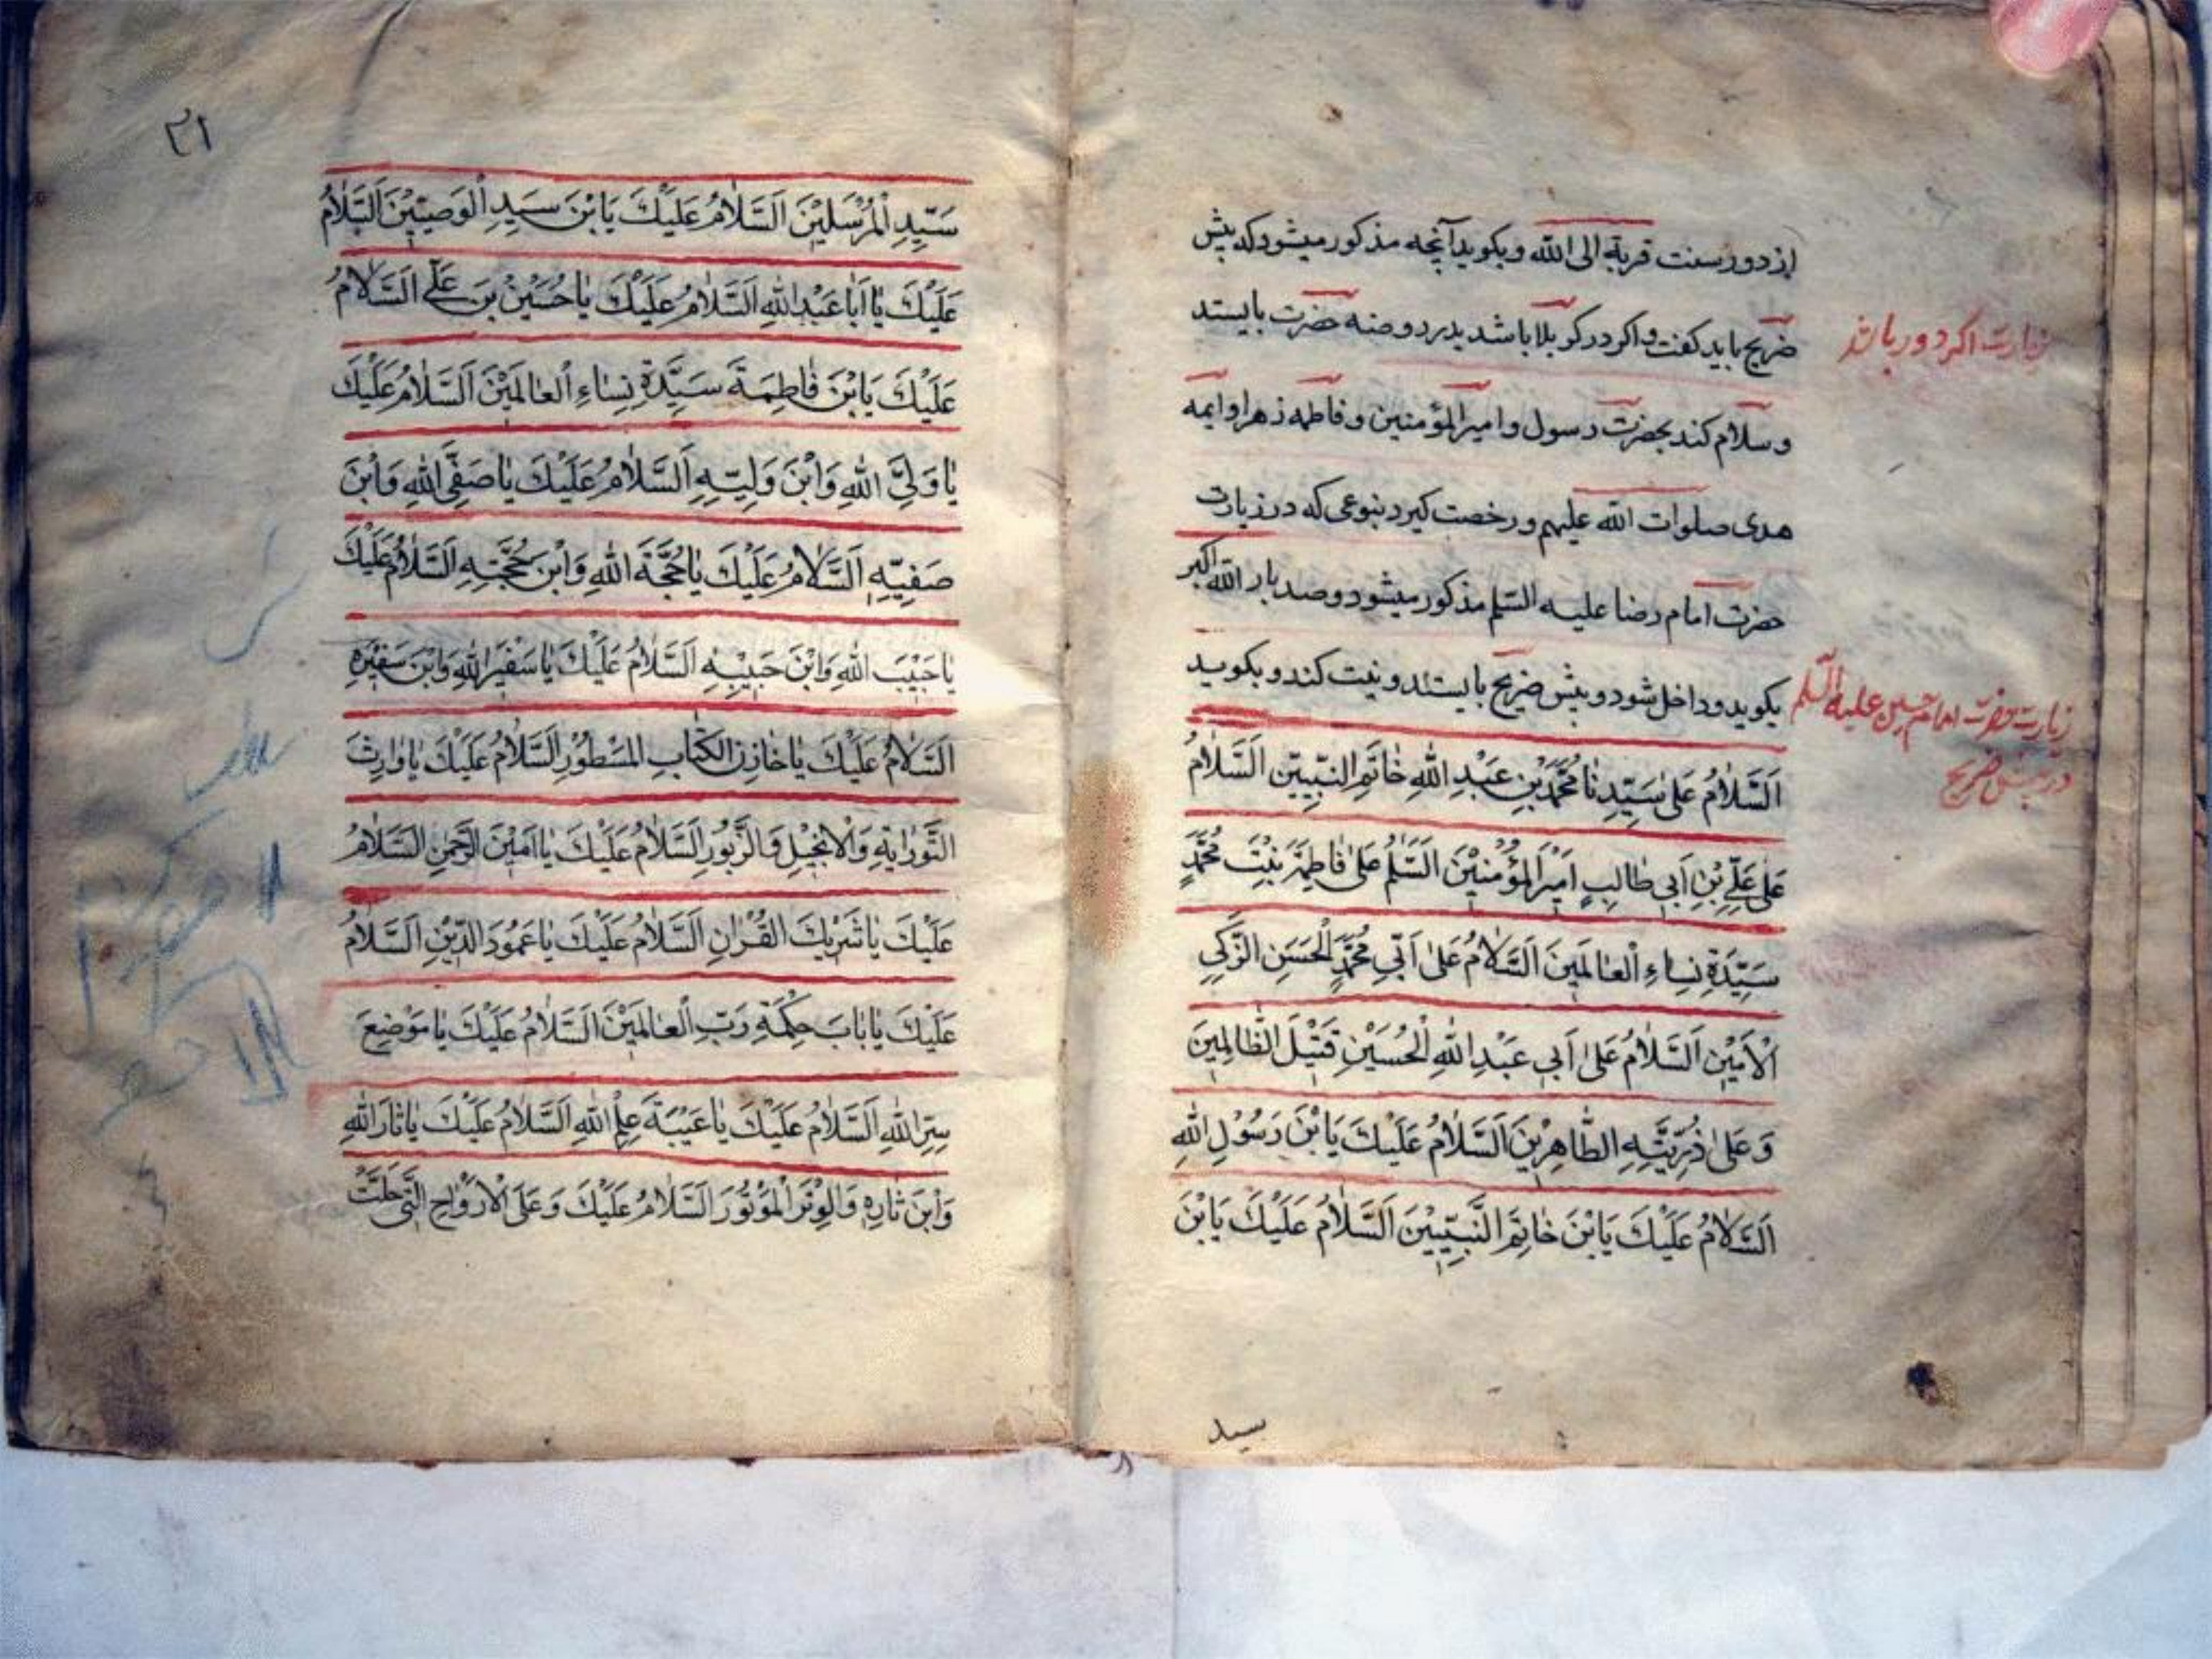 از دور سنت قربة الی الله و بکوید آنچه مذکور میشود که پیش
ضریح باید کفت و اکر در کربلا باشد بدر روضه حضرت بایستد
زیارت اکر دور باشد
و سلام کند بحضرت رسول و امیرالمؤمنین و فاطمه زهرا و ایمه
هدی صلوات الله علیهم و رخصت کیرد بنوعی که در زیارت
حضرت امام رضا علیه السلم مذکور میشود و صد بار الله اکبر
بکوید و داخل شود و پیش ضریح بایستد و نیت کند و بکوید
زیارت حضرت امام حسین علیه السلم
در پیش ضریح
اَلسَّلاٰمُ عَلىٰ سَيِّدِنٰا مُحَمَّدِ بْنِ عَبْدِ اللهِ خٰاتَمِ النَّبِيّينَ اَلسَّلاٰمُ
عَلىٰ عَلِيِّ بْنِ اَبي طٰالِبٍ اَميْرِ الْمُؤْمِنيْنَ اَلسَّلٰمُ عَلىٰ فٰاطِمَةَ بِنْتِ مُحَمَّدٍ
سَيِّدَةِ نِسٰاءِ الْعٰالَمينَ اَلسَّلاٰمُ عَلىٰ اَبي مُحَمَّدٍ الْحَسَنِ الزَّكيِ
الْاَميْنِ اَلسَّلاٰمُ عَلىٰ اَبي عَبْدِ اللهِ الْحُسَيْنِ قَتيْلَ الظّٰالِمينَ
وَ عَلىٰ ذُرِّيَّتِهِ الطّٰاهِريْنَ اَلسَّلاٰمُ عَلَيْكَ يَابْنَ رَسُوْلِ اللهِ
اَلسَّلاٰمُ عَلَيْكَ يَابْنَ خٰاتِمَ النَّبِيّيْنَ اَلسَّلاٰمُ عَلَيْكَ يَابْنَ
سید
٢١
سَيِّدِ الْمُرْسَليْنَ اَلسَّلاٰمُ عَلَيْكَ يَابْنَ سَيِدِ الْوَصِيّيْنَ اَلسَّلاٰمُ
عَلَيْكَ يٰا اَبٰا عَبْدِ اللهِ اَلسَّلاٰمُ عَلَيْكَ يٰا حُسَيْنَ بنَ عَلّي اَلسَّلاٰمُ
عَلَيْكَ يَابْنَ فٰاطِمَةَ سَيِّدَةِ نِسٰاءِ الْعٰالَميْنَ اَلسَّلاٰمُ عَلَيْكَ
يٰا وَليَّ اللهِ وَابْنَ وَلِيّهِ اَلسَّلاٰمُ عَلَيْكَ يٰا صَفيَّ اللهِ وَابْنَ
صَفِيّهِ اَلسَّلاٰمُ عَلَيْكَ يٰا حُجَّةَ اللهِ وَابْنَ حُجَّتِهِ اَلسَّلاٰمُ عَلَيْكَ
يٰا حَبيْبَ اللهِ وَابْنَ حَبيْبِهِ اَلسَّلاٰمُ عَلَيْكَ يٰا سَفيْرَ اللهِ وَابْنَ سَفيْرِهِ
اَلسَّلاٰمُ عَلَيْكَ يٰا خٰازِنَ الكِتٰابِ المَسْطُوْرِ اَلسَّلاٰمُ عَلَيْكَ يٰا وٰارِثَ
التَّوْرٰايةِ وَالْاِنْجيْلِ وَالزَّبُوْرِ اَلسَّلاٰمُ عَلَيْكَ يٰا اَميْنَ الرَّحمٰنِ اَلسَّلاٰمُ
عَلَيْكَ يٰا شَريْكَ القُرْاٰنِ اَلسَّلاٰمُ عَلَيْكَ يٰا عَمُوْدَ الدّيْنِ اَلسَّلاٰمُ
عَلَيْكَ يٰا بٰابَ حِكْمَةِ رَبِّ الْعٰالَميْنَ اَلسَّلاٰمُ عَلَيْكَ يٰا مَوْضِعَ
سِرِّ اللهِ اَلسَّلاٰمُ عَلَيْكَ يٰا عَيْبَةَ عِلْمِ اللهِ اَلسَّلاٰمُ عَلَيْكَ يٰا ثٰارَ اللهِ
وَابْنَ ثٰارِهِ وَالْوِتْرَ الْمَوْتُوْرَ اَلسَّلاٰمُ عَلَيْكَ وَ عَلَى الْاَرْوٰاحِ الَّتي حَلَّتْ